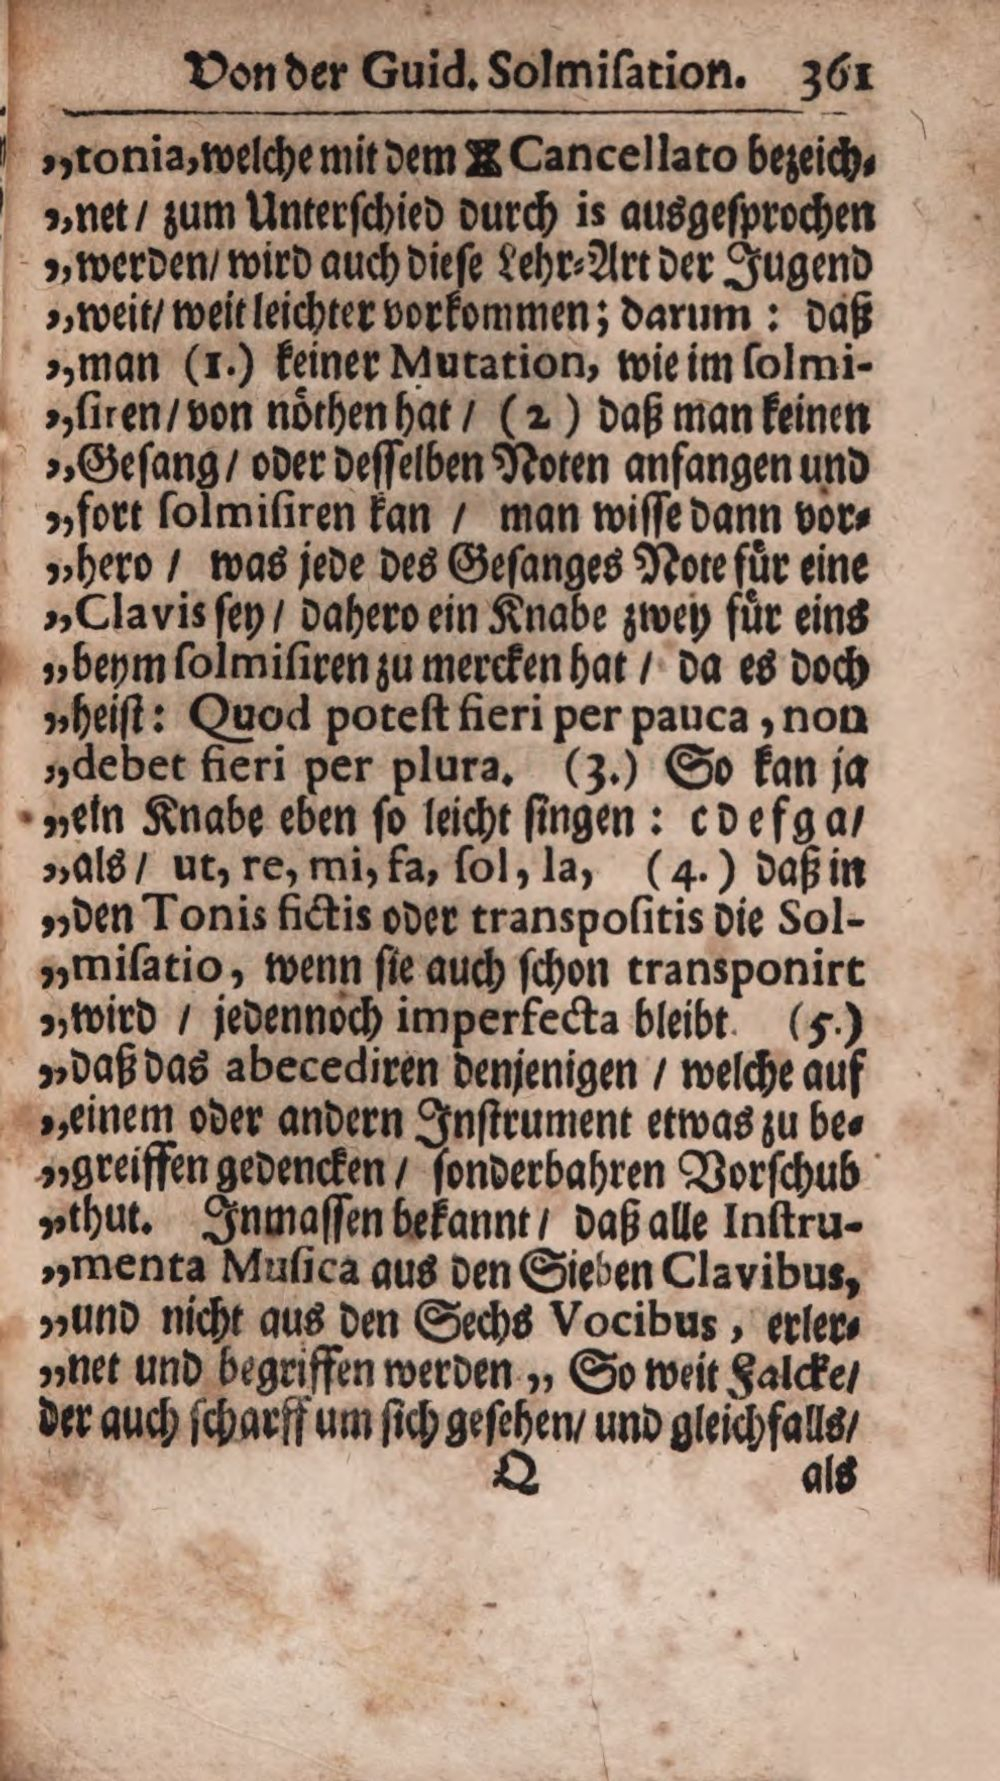 Von der Guid. Solmiſation. 361
„tonia, welche mit dem Cancellato bezeich⸗
„net / zum Unterſchied durch is ausgeſprochen
„werden / wird auch dieſe Lehr⸗Art der Jugend
„weit / weit leichter vorkommen; darum : daß
„man (1.) keiner Mutation, wie im ſolmi-
„ſiren / von nöthen hat / (2) daß man keinen
„Geſang / oder deſſelben Noten anfangen und
„fort ſolmiſiren kan / man wiſſe dann vor⸗
„hero / was jede des Geſanges Note für eine
„Clavis ſey / dahero ein Knabe zwey für eins
„beym ſolmiſiren zu mercken hat / da es doch
„heiſt: Quod poteſt fieri per pauca, non
„debet fieri per plura. (3.) So kan ja
„ein Knabe eben ſo leicht ſingen : c d e f g a /
„als / ut, re, mi, fa, ſol, la, (4.) daß in
„den Tonis fictis oder transpoſitis die Sol-
„miſatio, wenn ſie auch ſchon transponirt
„wird / jedennoch imperfecta bleibt. (5.)
„daß das abecediren denjenigen / welche auf
„einem oder andern Inſtrument etwas zu be⸗
„greiffen gedencken / ſonderbahren Vorſchub
„thut. Inmaſſen bekannt / daß alle Inſtru-
„menta Muſica aus den Sieben Clavibus,
„und nicht aus den Sechs Vocibus, erler⸗
„net und begriffen werden „ So weit Falcke /
der auch ſcharff um ſich geſehen / und gleichfalls /
Q als